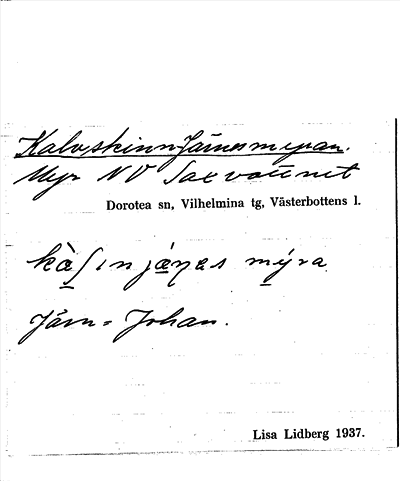 Kalvskinn-Jämesmyran.
Myr NV Saxvattnet
Dorotea sn, Vilhelmina tg, Västerbottens l.
kàʃın jáŋas mýra
Järn = Johan.
Lisa Lidberg 1937.